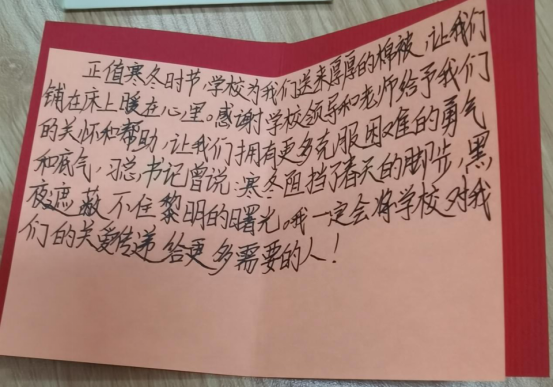 正值寒冬时节,学校为我们送来厚厚的棉被,让我们
铺在床上暖在心里。感谢学校领导和老师给予我们
的关怀和帮助,让我们拥有更多克服困难的勇气
和底气,习总书记曾说:寒冬阻挡了春天的脚步,黑
夜遮蔽不住黎明的曙光。我一定会将学校对我
们的关爱传递给更多需要的人!